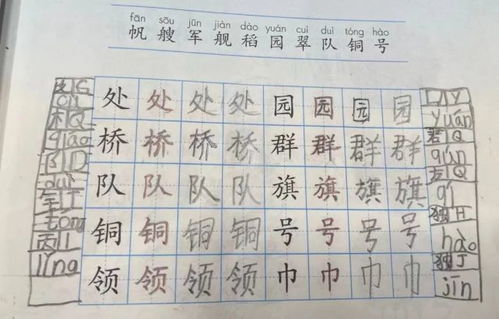 fān sōu jūn jiàn dào yuán cuì duì tóng hào
帆 艘 军 舰 稻 园 翠 队 铜 号
处 处 处 处 园 园 园 园
yuán
桥 桥 桥 桥 群 群 群 群
qiáo qún
队 队 队 队 旗 旗 旗 旗
duì qí
铜 铜 铜 铜 号 号 号 号
tóng hào
领 领 领 领 巾 巾 巾 巾
lǐng jīn